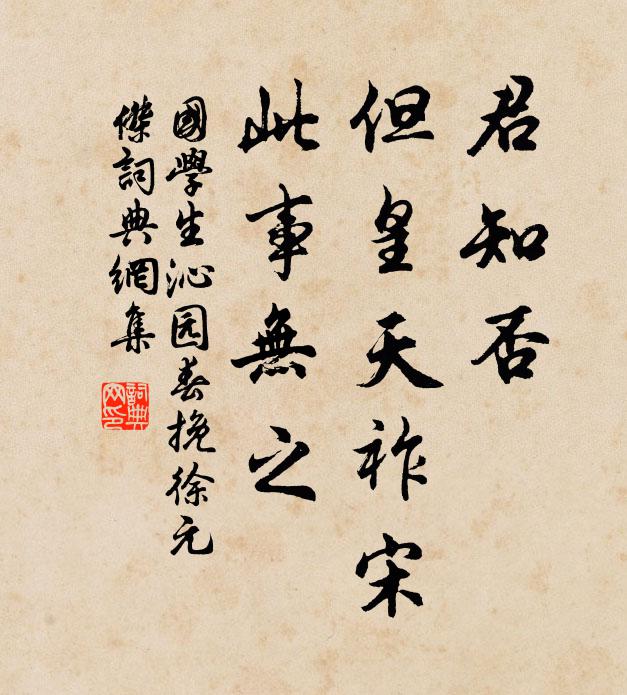 君知否
但皇天祚宋
此事無之
國學生沁园春挽徐元
傑詞典網集
詞典
网印